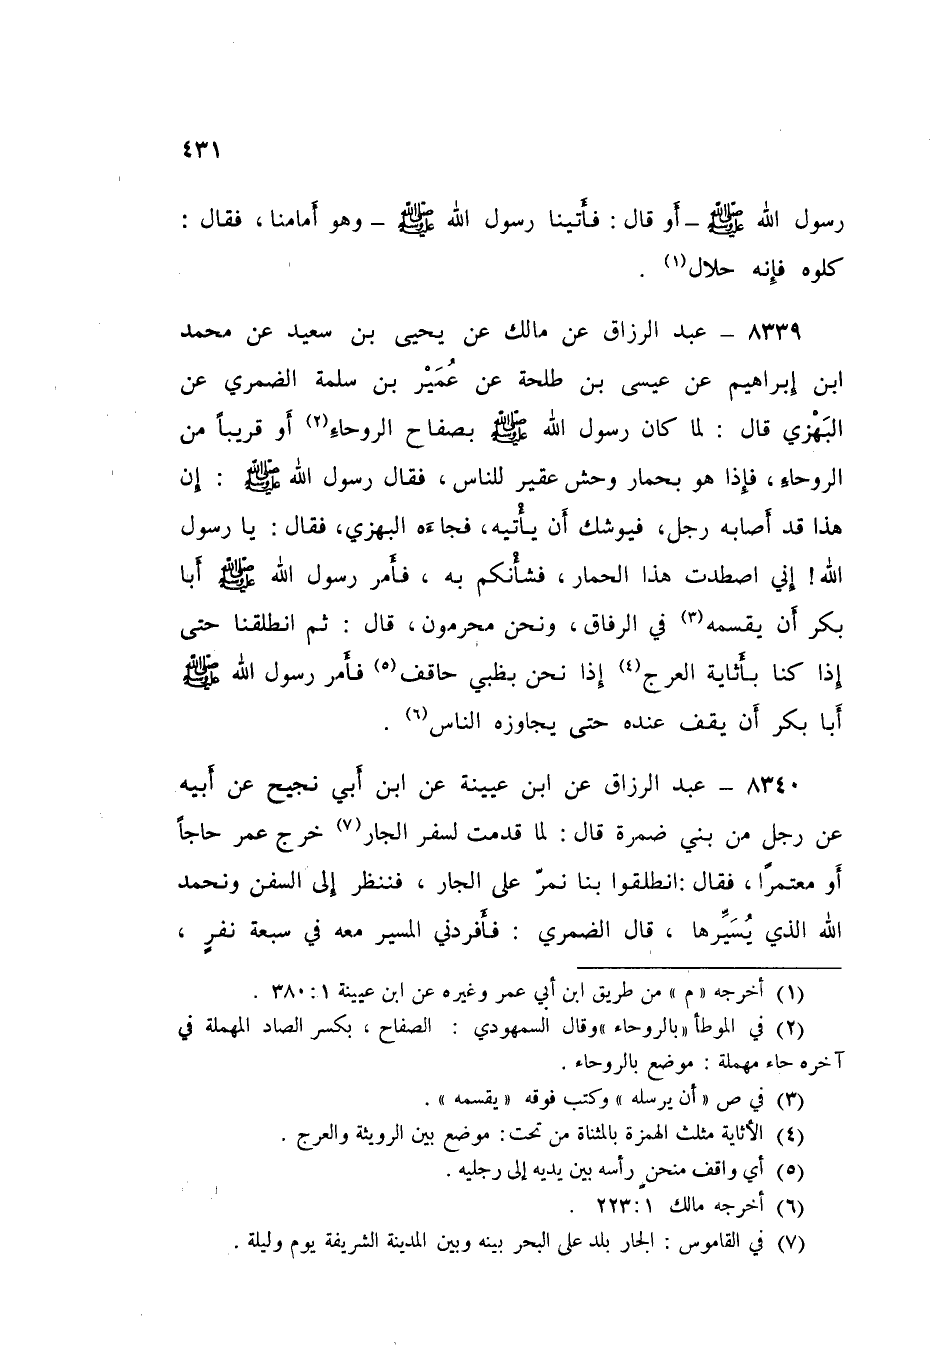 ٤٣١
رسول الله ﷺ ــ أو قال : فأتينا رسول الله ﷺ ــ وهو أمامنا ، فقال :
كلوه فإنه حلال(١) .
٨٣٣٩ ــ عبد الرزاق عن مالك عن يحيى بن سعيد عن محمد
ابن إبراهيم عن عيسى بن طلحة عن عُمَيْر بن سلمة الضمري عن
البَهْزي قال : لما كان رسول الله ﷺ بصفاح الروحاء(٢) أو قريباً من
الروحاء ، فإذا هو بحمار وحش عقير للناس ، فقال رسول الله ﷺ : إن
هذا قد أصابه رجل، فيوشك أن يأتيه، فجاءه البهزي، فقال : يا رسول
الله ! إني اصطدت هذا الحمار ، فشأنكم به ، فأمر رسول الله ﷺ أبا
بكر أن يقسمه(٣) في الرفاق ، ونحن محرمون، قال : ثم انطلقنا حتى
إذا كنا بأثاية العرج(٤) إذا نحن بظبي حاقف(٥) فأمر رسول الله ﷺ
أبا بكر أن يقف عنده حتى يجاوزه الناس(٦) .
٨٣٤٠ ــ عبد الرزاق عن ابن عيينة عن ابن أبي نجيح عن أبيه
عن رجل من بني ضمرة قال : لما قدمت لسفر الجار(٧) خرج عمر حاجاً
أو معتمرًا ، فقال :انطلقوا بنا نمرّ على الجار ، فننظر إلى السفن ونحمد
الله الذي يُسَيِّرها ، قال الضمري : فأفردني المسير معه في سبعة نفرٍ ،
(١) أخرجه «م» من طريق ابن أبي عمر وغيره عن ابن عيينة ١ : ٣٨٠ .
(٢) في الموطأ «بالروحاء »وقال السمهودي : الصفاح ، بكسر الصاد المهملة في
آخره حاء مهملة : موضع بالروحاء .
(٣) في ص « أن يرسله » وكتب فوقه « يقسمه » .
(٤) الأثاية مثلث الهمزة بالمثناة من تحت : موضع بين الرويثة والعرج .
(٥) أي واقف منحنٍ رأسه بين يديه إلى رجليه .
(٦) أخرجه مالك ١ : ٢٢٣ .
(٧) في القاموس : الجار بلد على البحر بينه وبين المدينة الشريفة يوم وليلة .